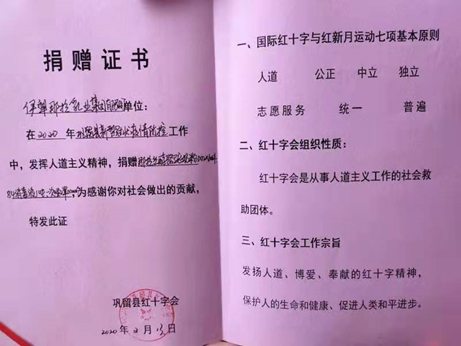 捐赠证书
单位:
在2020年 工作
中,发挥人道主义精神,捐赠
为感谢你对社会做出的贡献,
特发此证
巩留县红十字会
2020年 月 日
一、国际红十字与红新月运动七项基本原则
人道 公正 中立 独立
志愿服务 统一 普遍
二、红十字会组织性质:
红十字会是从事人道主义工作的社会救
助团体。
三、红十字会工作宗旨
发扬人道、博爱、奉献的红十字精神,
保护人的生命和健康、促进人类和平进步。